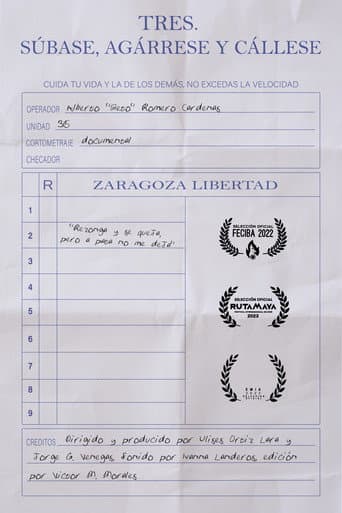 TRES.
SÚBASE, AGÁRRESE Y CÁLLESE
CUIDA TU VIDA Y LA DE LOS DEMÁS, NO EXCEDAS LA VELOCIDAD
OPERADOR Alberto "Beto" Romero Cardenas
UNIDAD 35
CORTOMETRAJE documental
CHECADOR
R ZARAGOZA LIBERTAD
1
2 "Rezonga y se queja,
pero a pata no me deja"
3
4
5
6
7
8
9
SELECCIÓN OFICIAL
FECIBA 2022
SELECCIÓN OFICIAL
RUTAMAYA
2022
CREDITOS Dirigido y producido por Ulises Ortiz Lara y
Jorge G. Venegas, Sonido por Ivanna Landeros, edición
por Victor M. Morales